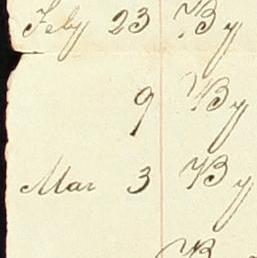 Feby 23 By
9 By
Mar 3 By
B